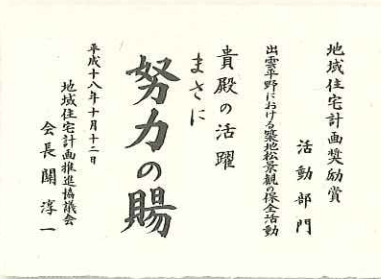 地域住宅計画奨励賞
活動部門
出雲平野における築地松景観の保全活動
貴殿の活躍
まさに
努力の賜
平成十八年十月十二日
地域住宅計画推進協議会
会長関淳一